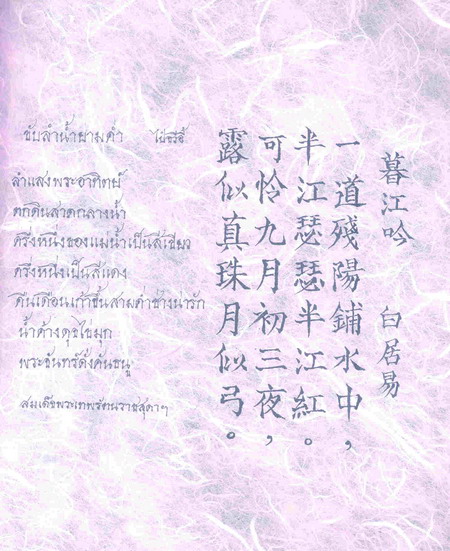 暮江吟 白居易
一道殘陽鋪水中，
半江瑟瑟半江紅。
可怜九月初三夜，
露似真珠月似弓。
ขับลำน้ำยามค่ำ ไป๋จวีอี้
ลำแสงพระอาทิตย์
ตกดินสาดกลางน้ำ
ครึ่งหนึ่งของแม่น้ำเป็นสีเขียว
ครึ่งหนึ่งเป็นสีแดง
คืนเดือนเก้าขึ้นสามค่ำช่างน่ารัก
น้ำค้างดุจไข่มุก
พระจันทร์ดังคันธนู
สมเด็จพระเทพรัตนราชสุดาฯ